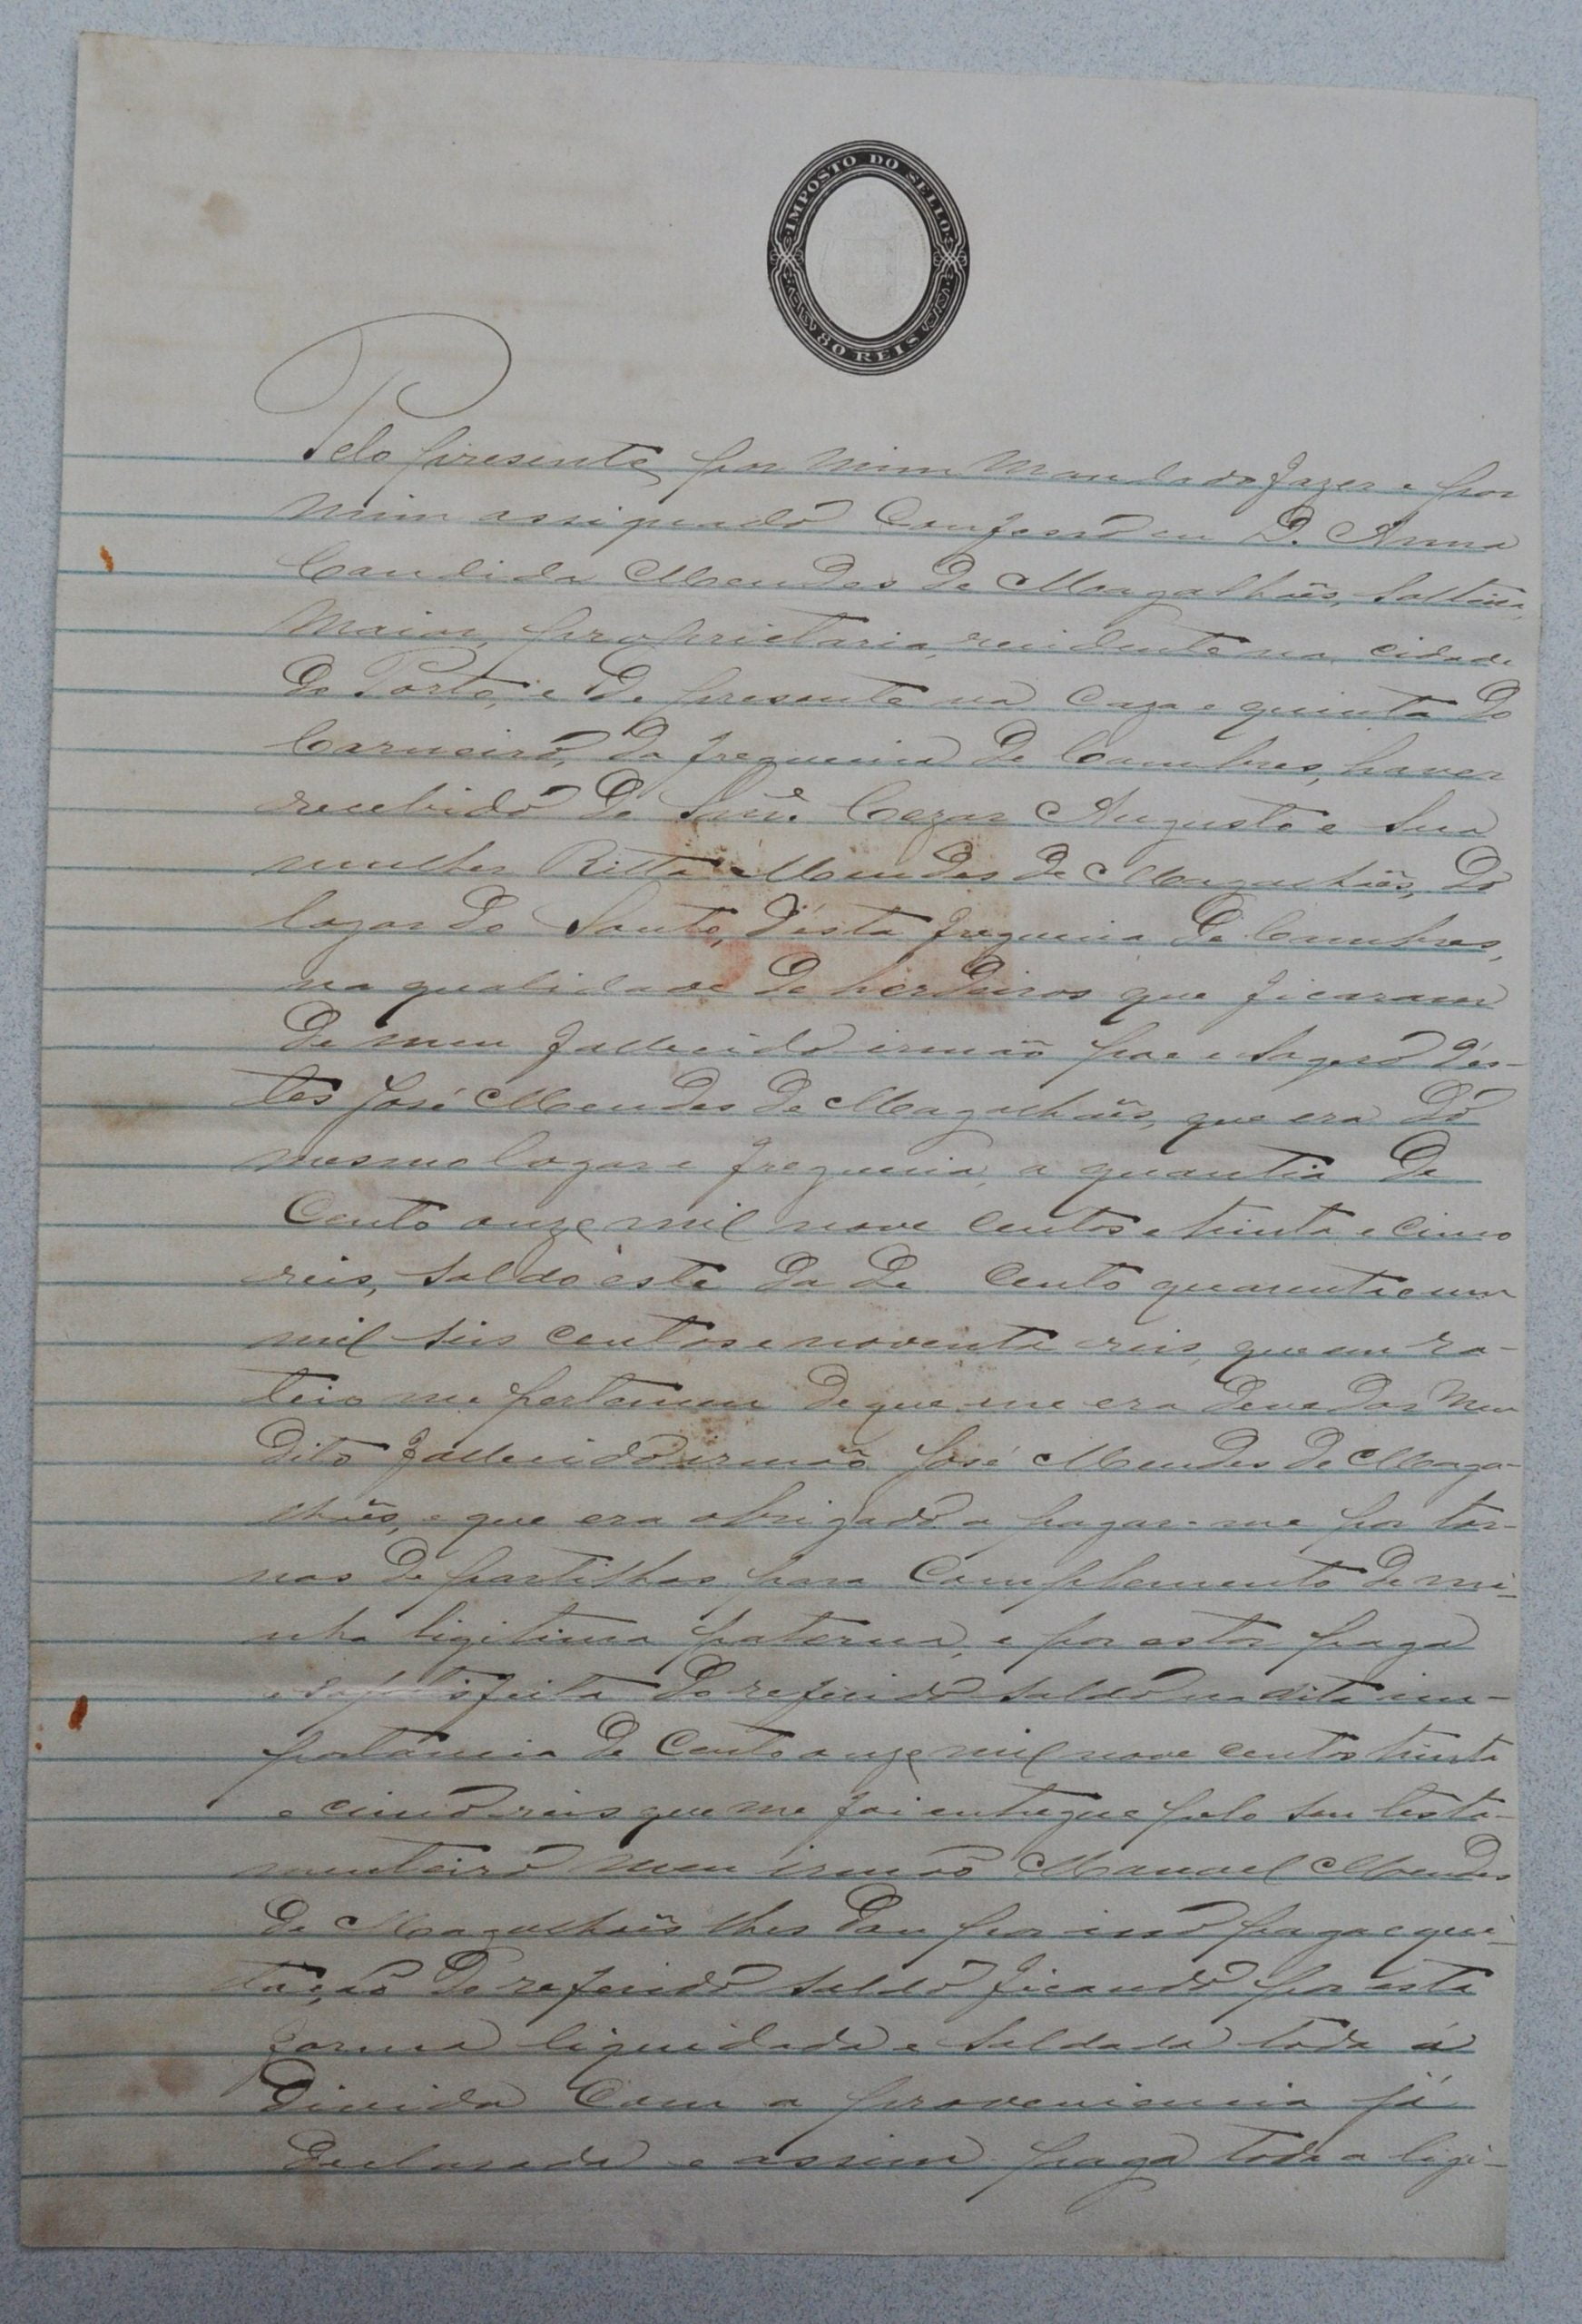 IMPOSTO DO SELLO
80 REIS
Pelo presente, por mim mandado fazer e por
mim assignado Confesso eu D. Anna
Candida Mendes de Magalhães, solteira,
maior, proprietaria, residente na cidade
do Porto, e de presente na caza e quinta do
Carneiro, da freguesia de Cambres, haver
recebido de Cezar Augusto e sua
mulher Ritta Mendes de Magalhães, do
logar do Souto, d'esta freguesia de Cambres,
na qualidade de herdeiros que ficaram
de meu fallecido irmão pae e sogro d'es-
tes José Mendes de Magalhães, que era do
mesmo logar e freguesia, a quantia de
Cento onze mil nove centos e trinta e cinco
reis, saldo este da de Cento quarenta e um
mil seis centos e noventa reis, que em ra-
teio me pertenceu de que me era devedor meu
dito fallecido irmão José Mendes de Maga-
lhães, e que era obrigado a pagar-me por tor-
nas de partilhas para Complemento de mi-
nha ligitima paterna, e por estar paga
e satisfeita do referido saldo na dita im-
portancia de Cento onze mil nove centos trinta
e cinco reis que me foi entregue pelo seu testa-
menteiro meu irmão Manoel Mendes
de Magalhães lhes dou por isso paga e qui-
tação do referido saldo ficando por esta
forma liquidada e saldada toda a
divida Com a proveniencia já
declarada e assim paga toda a ligi-